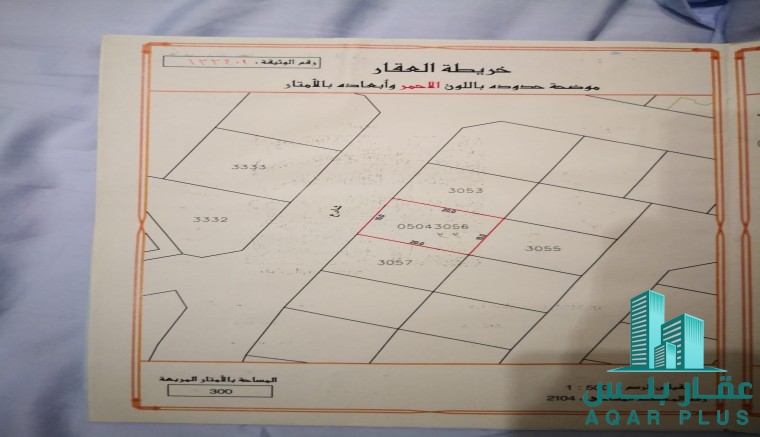 خريطة العقار
رقم الوثيقة :
موضحة حدوده باللون الأحمر وأبعاده بالأمتار
3333
3332
شارع
3053
20.0
05043056
20.0
3055
3057
المساحة بالأمتار المربعة
300
1 :
2104
عقار بلس
AQAR PLUS